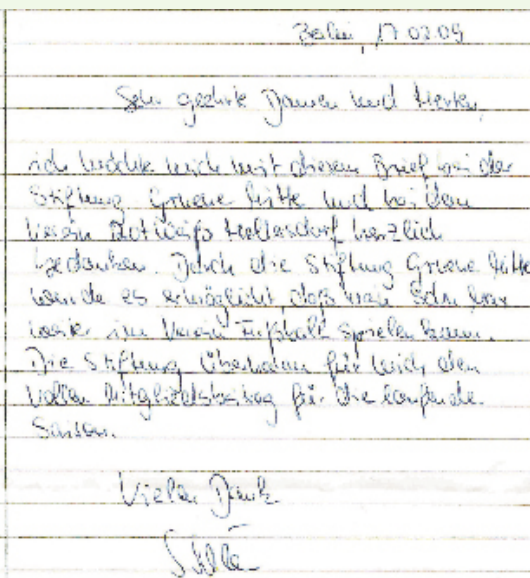 Berlin, 17.02.09
Sehr geehrte Damen und Herren,
ich möchte mich mit diesem Brief bei der
Stiftung Gruene Mitte und bei dem
Verein Rotweiß Hellersdorf herzlich
bedanken. Durch die Stiftung Gruene Mitte
wurde es ermöglicht, daß mein Sohn
weiter im Verein Fußball spielen kann.
Die Stiftung übernahm für mich den
vollen Mitgliedsbeitrag für die laufende
Saison.
Vielen Dank